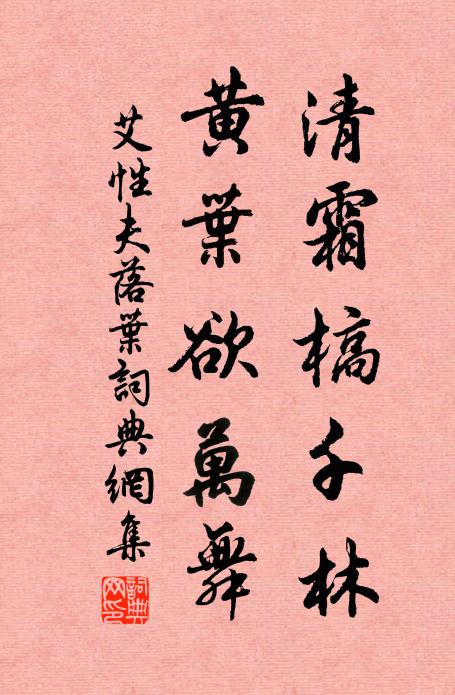 清霜槁千林
黄葉欲萬舞
艾性夫落葉詞典網集
詞典網印